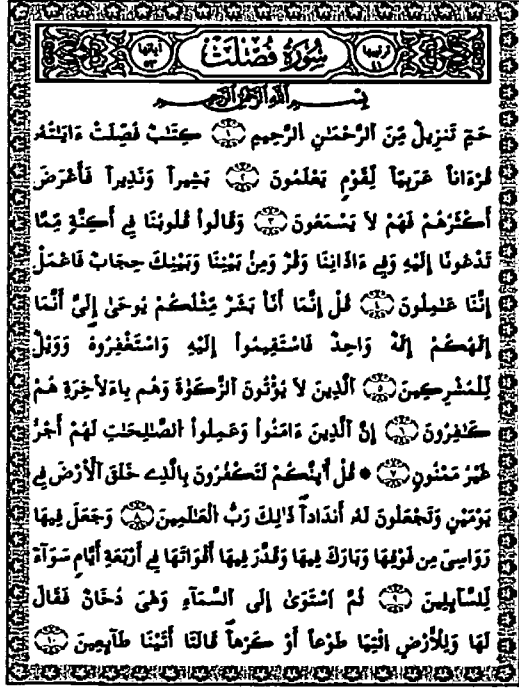 ترتيبها ٤١ سُورَةُ فُصِّلَتْ آياتها ٥٣
بِسْمِ اللَّهِ الرَّحْمَٰنِ الرَّحِيمِ
حَمٓ تَنزِيلٌ مِّنَ اَلرَّحْمَٰنِ اِلرَّحِيمِ ١ كِتَٰبٌ فُصِّلَتْ ءَايَٰتُهُ
قُرْءَاناً عَرَبِيّاً لِّقَوْمٍ يَعْلَمُونَ ٢ بَشِيراً وَنَذِيراً فَأَعْرَضَ
أَكْثَرُهُمْ فَهُمْ لاَ يَسْمَعُونَ ٣ وَقَالُواْ قُلُوبُنَا فِي أَكِنَّةٍ مِّمَّا
تَدْعُونَا إِلَيْهِ وَفِي ءَاذَانِنَا وَقْرٌ وَمِنْ بَيْنِنَا وَبَيْنِكَ حِجَابٌ فَاعْمَلْ
إِنَّنَا عَٰمِلُونَ ٤ قُلْ إِنَّمَا أَنَا بَشَرٌ مِّثْلُكُمْ يُوحَىٰ إِلَيَّ أَنَّمَا
إِلَٰهُكُمْ إِلَٰهٌ وَاحِدٌ فَاسْتَقِيمُواْ إِلَيْهِ وَاسْتَغْفِرُوهُ وَوَيْلٌ
لِّلْمُشْرِكِينَ ٥ اَلَّذِينَ لاَ يُؤْتُونَ اَلزَّكَوٰةَ وَهُم بِاءَلاَخِرَةِ هُمْ
كَٰفِرُونَ ٦ إِنَّ اَلَّذِينَ ءَامَنُواْ وَعَمِلُواْ الصَّٰلِحَٰتِ لَهُمْ أَجْرٌ
غَيْرُ مَمْنُونٍ ٧ * قُلْ أَئِنَّكُمْ لَتَكْفُرُونَ بِالَّذِے خَلَقَ اَلْأَرْضَ فِي
يَوْمَيْنِ وَتَجْعَلُونَ لَهُ أَندَاداً ذَٰلِكَ رَبُّ الْعَٰلَمِينَ ٨ وَجَعَلَ فِيهَا
رَوَاسِيَ مِن فَوْقِهَا وَبَارَكَ فِيهَا وَقَدَّرَ فِيهَا أَقْوَاتَهَا فِي أَرْبَعَةِ أَيَّامٍ سَوَآءً
لِّلسَّآئِلِينَ ٩ ثُمَّ اَسْتَوَىٰ إِلَى اَلسَّمَآءِ وَهْيَ دُخَانٌ فَقَالَ
لَهَا وَلِلْأَرْضِ اِئْتِيَا طَوْعاً أَوْ كَرْهاً قَالَتَا أَتَيْنَا طَآئِعِينَ ١٠